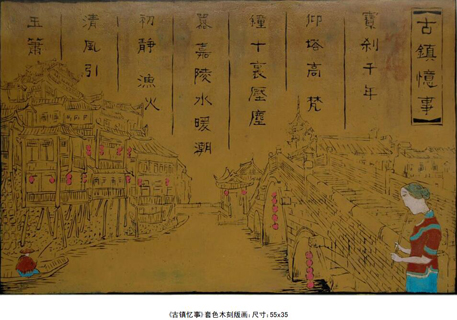 【古鎮憶事】
寶刹千年
仰塔高梵
鐘十裏壓塵
囂嘉陵水暖潮
初靜漁火
清風引
玉簫
《古镇忆事》套色木刻版画；尺寸；55x35